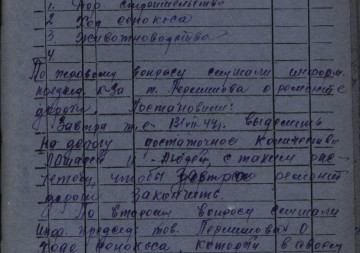 1. Дор. строительство
2 Ход сенокоса
3 Животноводство
4
По первому вопросу слушали информ.
к-за т. Перешивова о ремонте
дороги, Постановили:
Завтра т. е. 47г. выделить
на дорогу достаточное количество
лошадей и людей, с таким рас-
четом, чтобы завтра ремонт
дороги закончить.
По второму вопросу слушали
инф. председ. тов. Перешивова О
ходе сенокоса, который